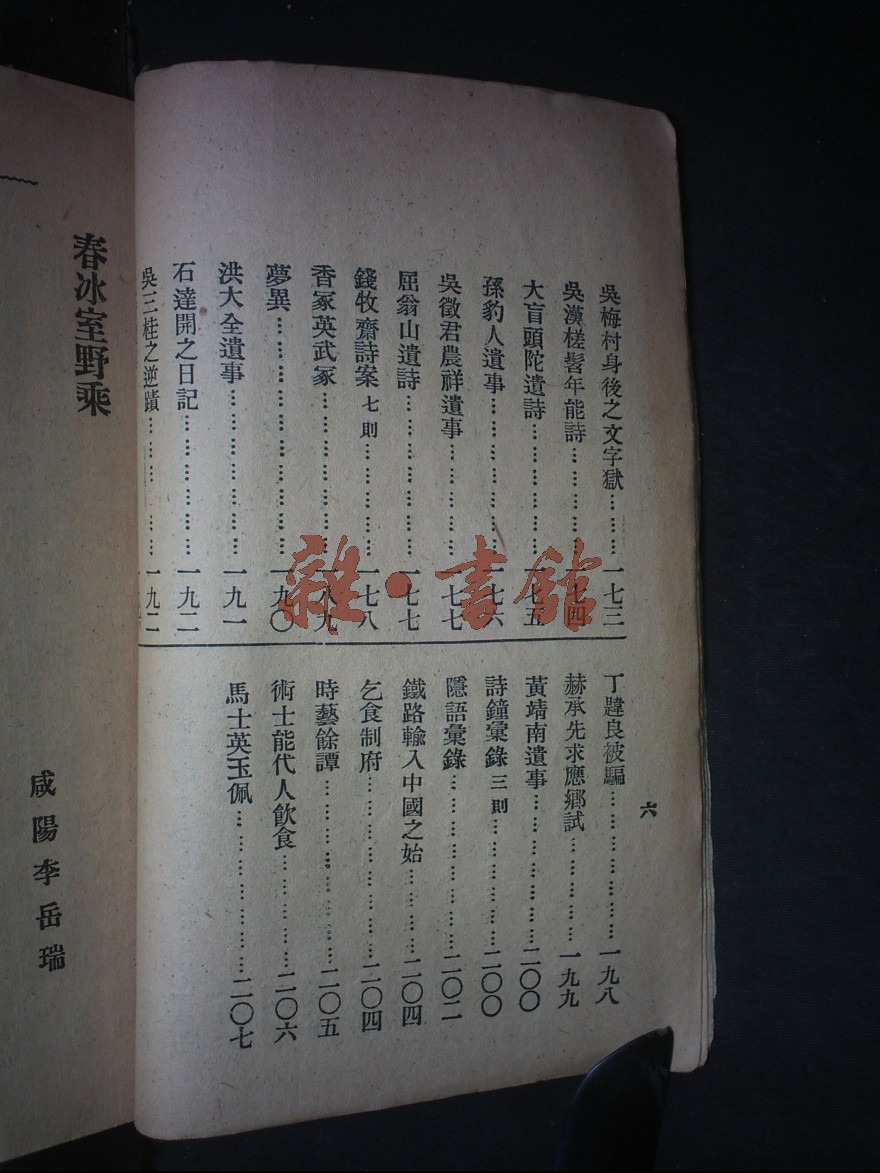 六
吳梅村身後之文字獄…………一七三
吳漢槎髫年能詩…………一七四
大盲頭陀遺詩…………一七五
孫豹人遺事…………一七六
吳徵君農祥遺事…………一七七
屈翁山遺詩…………一七七
錢牧齋詩案 七則…………一七八
香冢英武冢…………一八九
夢異…………一九〇
洪大全遺事…………一九一
石達開之日記…………一九二
吳三桂之逆蹟…………一九二
丁韙良被騙…………一九八
赫承先求應鄉試…………一九九
黃靖南遺事…………二〇〇
詩鐘彙錄 三則…………二〇〇
隱語彙錄…………二〇二
鐵路輸入中國之始…………二〇四
乞食制府…………二〇四
時藝餘譚…………二〇五
術士能代人飲食…………二〇六
馬士英玉佩…………二〇七
春冰室野乘
咸陽李岳瑞
雜·書館